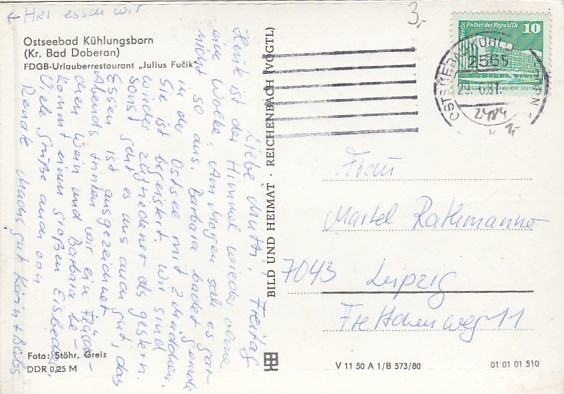 ← Hier essen wir
Ostseebad Kühlungsborn
(Kr. Bad Doberan)
FDGB-Urlauberrestaurant „Julius Fučik“
Liebe Mutti, Freitag
Heut ist der Himmel wieder ohne
eine Wolke. Am Morgen sah es gar
nicht so aus. Barbara badet gerade
in der Ostsee mit 2 Mädchen.
Sie ist begeistert. Wir sind
wieder zufriedener als gestern.
Sonst geht es uns auch gut, das
Essen ist ausgezeichnet.
Abends trinken wir ein Fläsch-
chen Wein und Barbara be-
kommt einen großen Eisbecher.
Viele Grüße auch von
Renate
Foto: Stöhr, Greiz
DDR 0,25 M
BILD UND HEIMAT · REICHENBACH (VOGTL)
V 11 50 A 1/B 573/80
01 01 01 510
3,-
Palast der Republik 10
2565
29.-6.81
OSTSEEBAD KÜHLUNGSBORN
2484
Frau
Martel Rathmann
7043 Leipzig
Fretschenweg 11